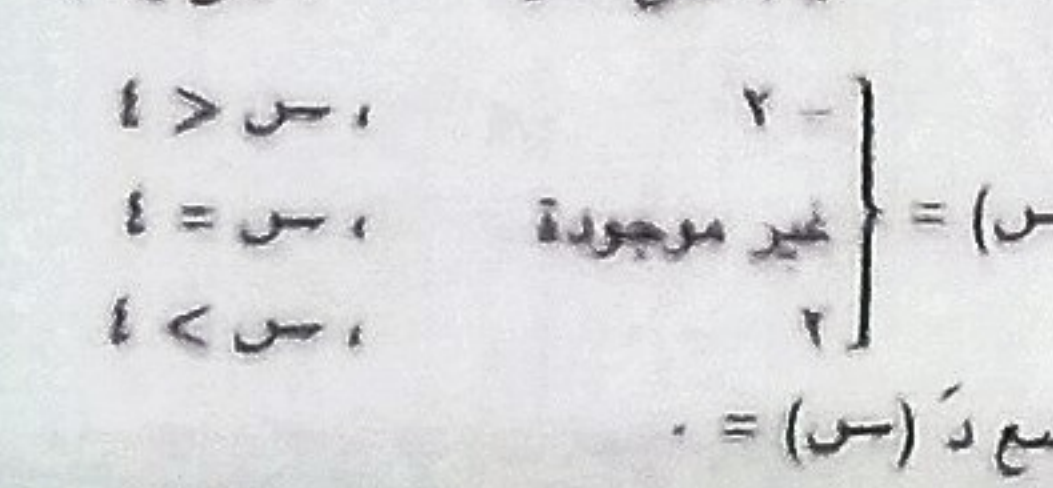 - ٢ ، س < ٤
س) = { غير موجودة ، س = ٤
٢ ، س > ٤
دَ (س) = ٠